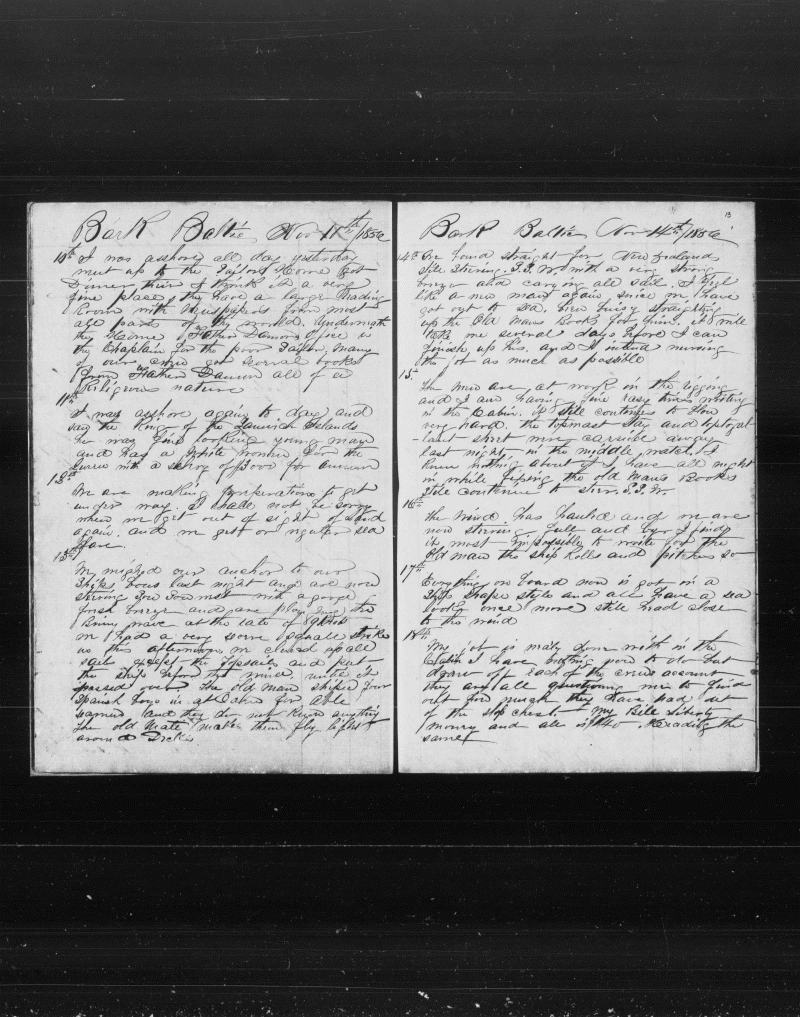 Bark Baltic Nov 11th/1856
10th I was asshore all day yesterday
went up to the Saylors Home Got
Dinner their I think it a very
fine place, they have a large Reading
Room with Newspapers from most
all parts of the world. Underneath
the Home is Father Damons Office is
the Chaplain for the poor Saylor, many
of our crew got several books
from Father Damon all of a
Religious nature
11th
I was asshore again to day and
saw the King of the Sandwich Islands
he was fine looking young man
and has a White woman for the
Queen with a salary of 3000 for annum
12th
We are making preparations to get
under way. I shall not be sorry
when we get out of sight of Land
again. and we get on regular sea
fare.
13th
We weighed our anchor to our
Ships bows last night and are now
stering Sou Sou west with a good
fresh breeze and are plowing the
Briny wave at the rate of 8 knots
we had a very severe squall strike
us this afternoon, we clewed up all
sail except the Topsails and put
the ship before the wind until it
passed over the old man shiped four
Spanish boys in at Oahu for able
seamen and they do not know anything
the old Mate makes them fly light
around Decks
13
Bark Baltic Nov 14th/1856
14th On bound straight for New Zealand
Still Stering. S.S.W. with a very strong
breeze and carying all sail. I feel
like a new man again since we have
got out to sea, been buisy straighting
up the Old Mans Books for him. it will
take me several days before I can
finish up his. and I intend nursing
the job as much as possible
15th
The Men are at work in the rigging
and I am having fine easy times writing
in the Cabin. it still continues to blow
very hard. the topmast stay and toplogal
-lant sheet were carried away
last night in the middle watch. I
knew nothing about it I have all night
in while fixing the old mans Books
Still continue to steer. S.S.W.
16th
the Wind has hauled and we are
now stering full and by. I find
it most impossible to write for the
Old man the ship Rolls and pitches so
17th
Everything on board now is got in a
Ship shape style and all have a sea
look once more still haul close
to the wind
18th
My job is mately done with in the
Cabin I have nothing now to do but
draw off each of the crews account
they are all questioning me to find
out how much they have had out
of the slop chest. My Bill Liberty
money and all is Reading the
same